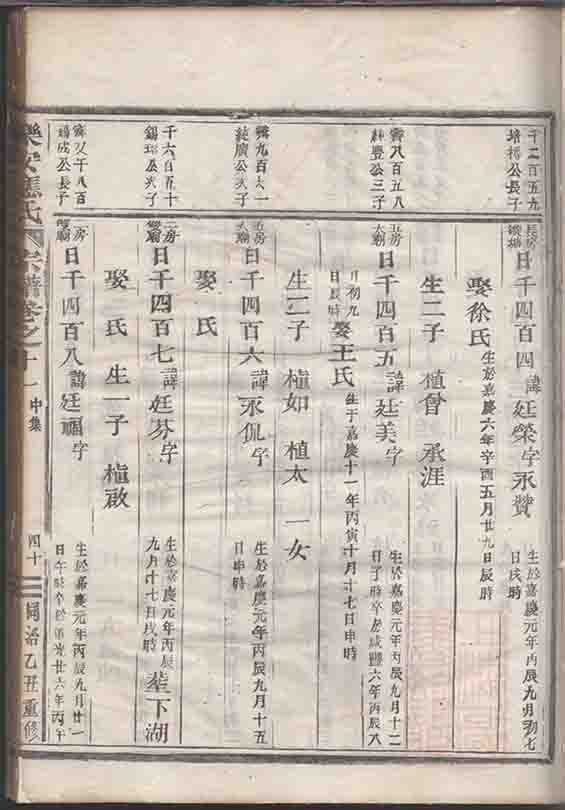 千二百五九
培楊公長子
長房
日千四百四 諱廷榮字永贊
生於嘉慶元年丙辰九月初七
日戌時
娶徐氏 生於嘉慶六年辛酉五月廿九日辰時
生二子 植會 承涯
齊八百五八
公三子
五房
日千四百五 諱廷美字
生於嘉慶元年丙辰九月十二
日子時卒於咸豐六年丙辰八
月初九
日辰時
娶王氏 生于嘉慶十一年丙寅十月十七日申時
生二子 植如 植太 一女
齊九百六一
純廣公次子
五房
日千四百六 諱永侃字
生於嘉慶元年丙辰九月十五
日申時
娶 氏
千六百五十
錫 公次子
二房
日千四百七 諱廷芬字
生於嘉慶元年丙辰
九月十七日戌時
葬下湖
娶 氏 生一子 植啟
齊 千八百
錫成公長子
二房
日千四百八 諱廷福字
生於嘉慶元年丙辰九月廿一
日午時卒於道光廿六年丙午
樂安 氏宗譜卷之十一 中集
四十
同治乙丑重修